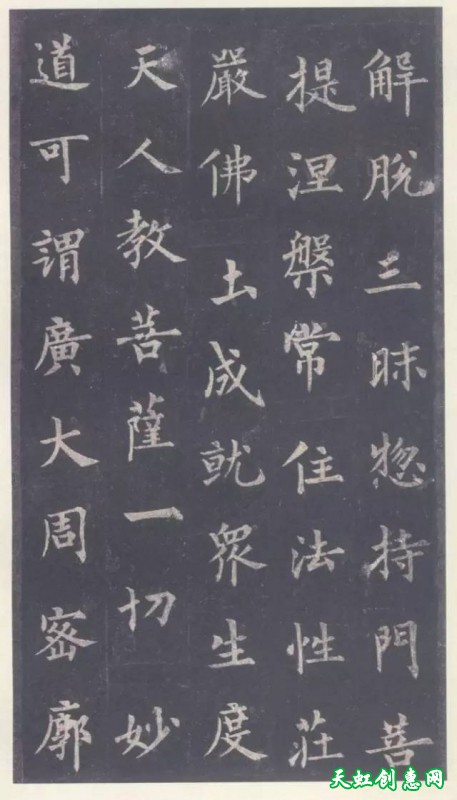 解脱三昧惣持門菩
提涅槃常住法性莊
嚴佛土成就衆生度
天人教菩薩一切妙
道可謂廣大周密廓
天虹创惠网